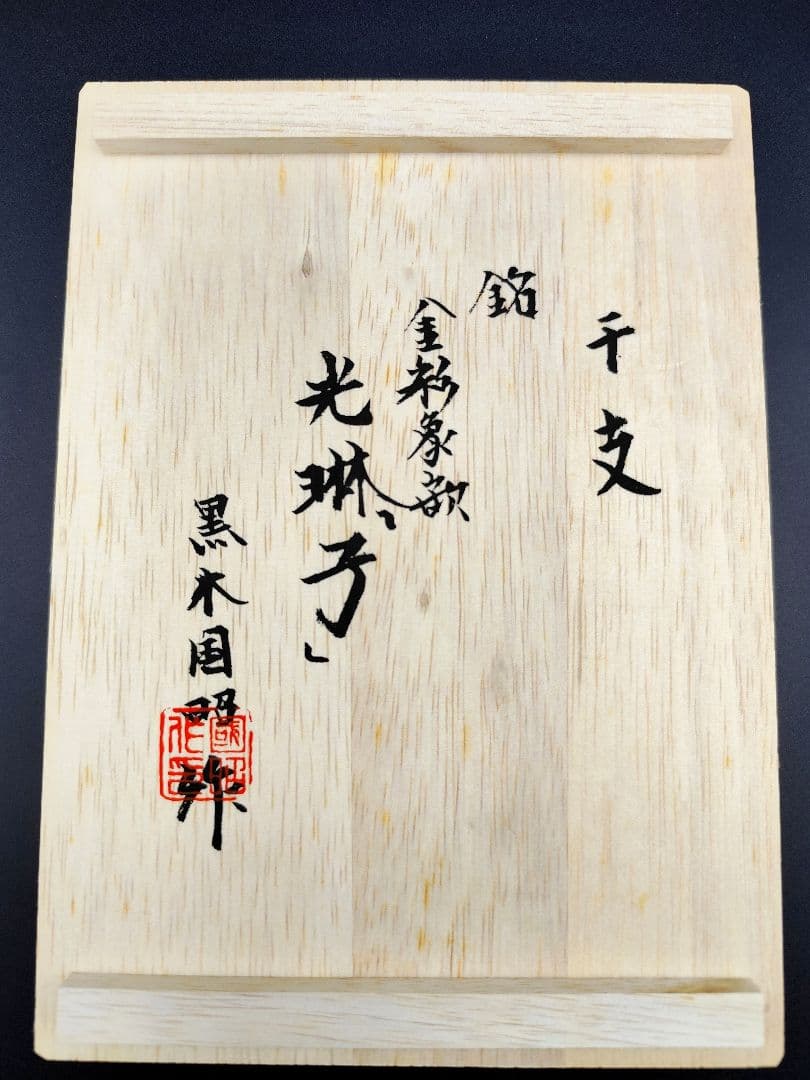 干支
銘
金彩象嵌
光琳「子」
黒木国昭作